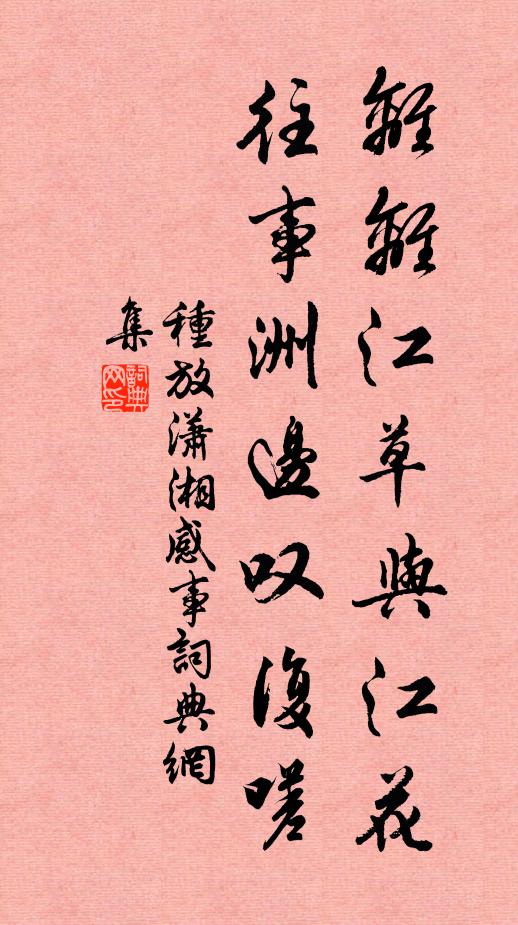 離離江草與江花
往事洲邊叹復嗟
種放瀟湘感事詞典網
集
詞典网印